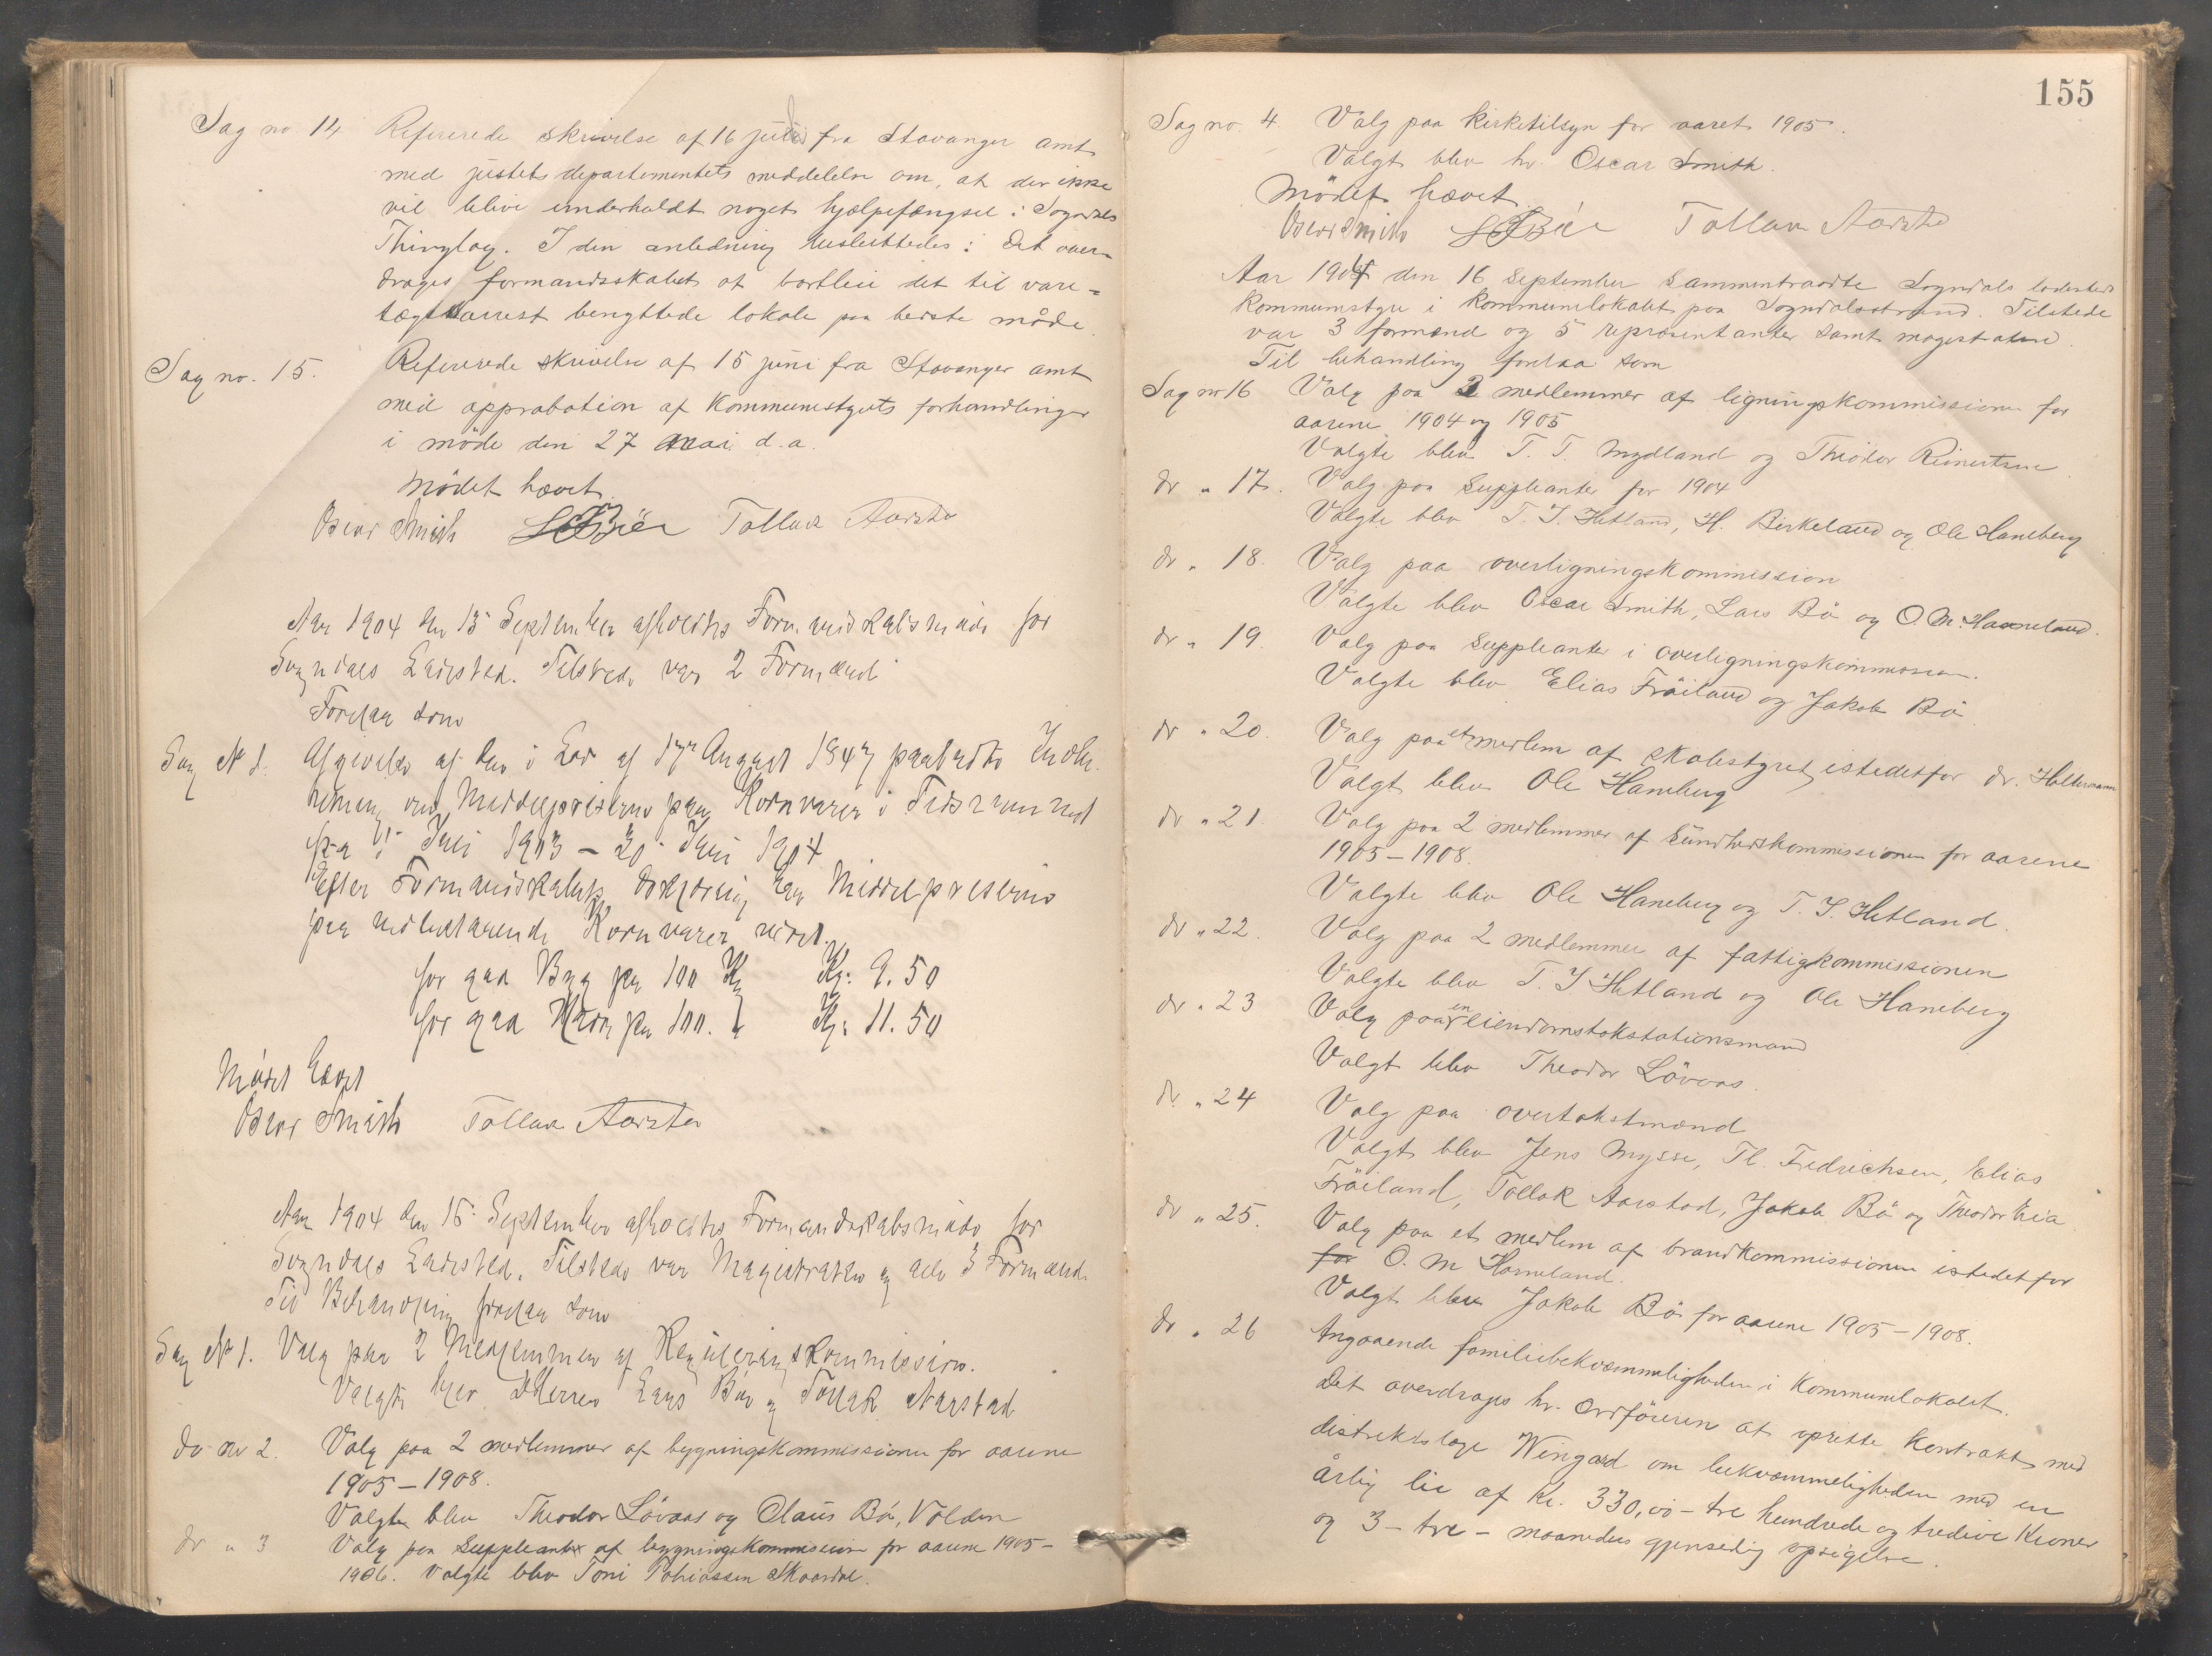 Sag no. 14 Refererede skrivelse af 16 juli fra Stavanger amt
med justitsdepartementets meddelelse om, at der ikke
vil blive underholdt noget hjælpefængsel i Sogndals
Thinglag. I den anledning besluttedes: Det over-
drages formandsskabet at bortleie det til vare-
tægtsarrest benyttede lokale paa bedste måde.
Sag no. 15. Refererede skrivelse af 15 juni fra Stavanger amt
med approbation af Kommunestyrets forhandlinger
i møde den 27 mai d.a.
Mödet hævet.
Oscar Smith LOBöe Tollak Aarstad
Aar 1904 den 13 September afholdtes Formandskabsmøde for
Sogndals Ladested. Tilstede var 2 Formænd
Foretaget som
Sag No 1. Afgivelse af den i Lov af 17de August 1847 paabudte Indbe-
retning om Middelpriserne paa Kornvarer i Tidsrummet
fra 1. Juli 1903 - 30 Juni 1904
Efter Formandskabets Skjøn har Middelpriserne
paa nedenstaaende Kornvarer været.
for god Byg pr 100 Kg Kr: 9.50
for god Havre pr 100. " Kr: 11.50
Mödet hævet
Oscar Smith Tollak Aarstad
Aar 1904 den 15 September afholdtes Formandskabsmøde for
Sogndals Ladested. Tilstede var Magistraten og alle 3 Formænd.
Til Behandling foretaget som
Sag No 1. Valg paa 2 Medlemmer af Reguleringskommission.
Valgte blev DHerrer Lars Böe og Tollak Aarstad
do no 2. Valg paa 2 medlemmer af bygningskommissionen for aarene
1905-1908.
Valgte blev Theodor Lövaas og Claus Bö, Volden
do " 3 Valg paa Suppleanter af bygningskommission for aarene 1905-
1906. Valgte blev Toni Tobiassen Skaardal.
155
Sag no. 4. Valg paa kirketilsyn for aaret 1905.
Valgt blev hr. Oscar Smith.
Mödet hævet.
Oscar Smith LOBöe Tollak Aarstad
Aar 1904 den 16 September sammentraadte Sogndals ladesteds
Kommunestyre i kommunelokalet paa Sogndalsstrand. Tilstede
var 3 formænd og 5 repræsentanter samt magistraten.
Til behandling foretaa som
Sag no 16 Valg paa 2 medlemmer af ligningskommissionen for
aarene 1904 og 1905
Valgte blev T. T. Mydland og Theodor Reinertsen
do " 17. Valg paa Suppleanter for 1904
Valgte blev T. J. Hetland, H. Birkeland og Ole Haneberg
do " 18. Valg paa overligningskommission
Valgte blev Oscar Smith, Lars Bö og O. M. Haaneland.
do " 19. Valg paa Suppleanter i overligningskommission.
Valgte blev Elias Fröiland og Jakob Bö
do " 20. Valg paa et medlem af skolestyret istedetfor dr. Holtermann
Valgt blev Ole Haneberg
do " 21. Valg paa 2 medlemmer af Sundhedskommissionen for aarene
1905-1908.
Valgte blev Ole Haneberg og T. J. Hetland.
do " 22. Valg paa 2 medlemmer af fattigkommissionen
Valgte blev T. J. Hetland og Ole Haneberg
do " 23 Valg paa en eiendomstakstationsmand
Valgt blev Theodor Lövaas.
do " 24 Valg paa overtakstmænd
Valgt blev Jens Mysse, Tl. Fredrichsen, Elias
Fröiland, Tollak Aarstad, Jakob Bö og Theodor Eia
do " 25. Valg paa et medlem af brandkommissionen istedetfor
for O. M Haaneland.
Valgt blev Jakob Bö for aarene 1905-1908.
do " 26 Angaaende familiebekvæmmeligheden i Kommunelokalet.
Det overdrages hr. Ordföreren at oprette kontrakt med
distriktslæge Wingard om bekvæmmeligheden med en
årlig leie af kr. 330,00 - tre hundrede og tredive kroner
og 3 - tre - maaneders gjensidig opsigelse.